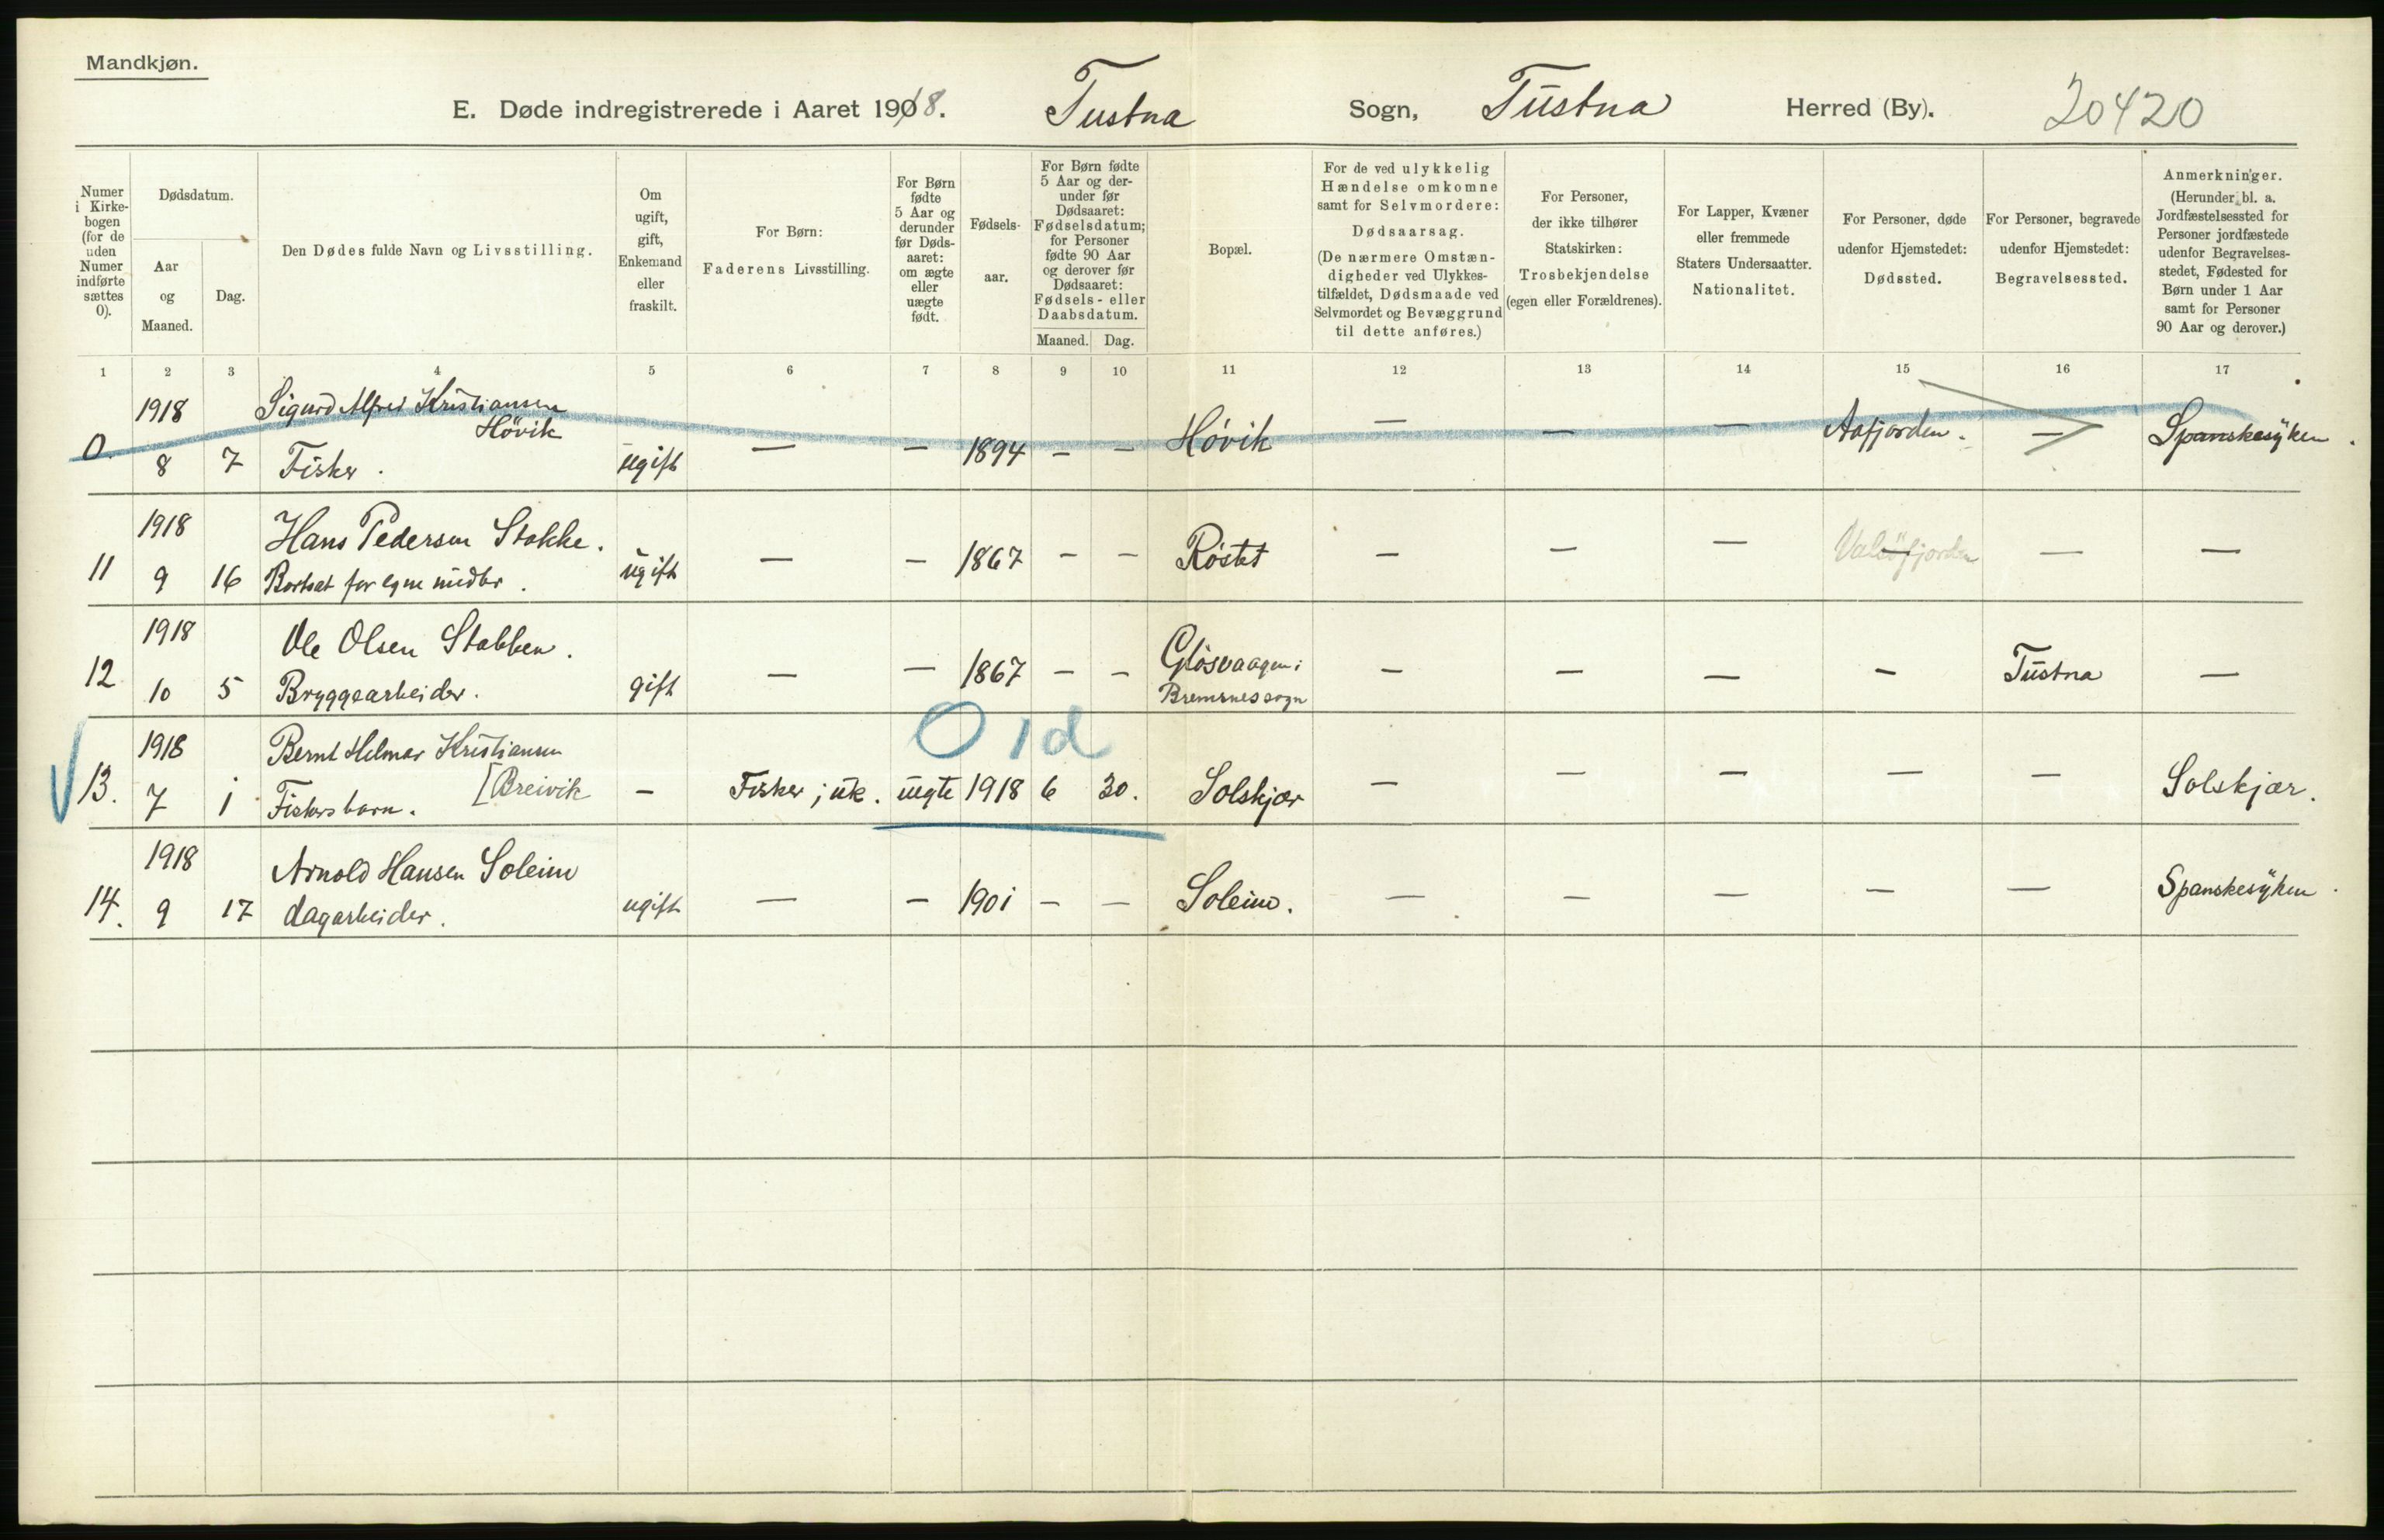 Mandkjøn.
E. Døde indregistrerede i Aaret 1918. Tustna Sogn, Tustna Herred (By). 20420
Numer i Kirkebogen (for de uden Numer indførte sættes 0).
Dødsdatum.
Aar og Maaned.
Dag.
Den Dødes fulde Navn og Livsstilling.
Om ugift, gift, Enkemand eller fraskilt.
For Børn: Faderens Livsstilling.
For Børn fødte 5 Aar og derunder før Dødsaaret: om ægte eller uægte født.
Fødselsaar.
For Børn fødte 5 Aar og derunder før Dødsaaret: Fødselsdatum; for Personer fødte 90 Aar og derover før Dødsaaret: Fødsels- eller Daabsdatum.
Maaned. Dag.
Bopæl.
For de ved ulykkelig Hændelse omkomne samt for Selvmordere: Dødsaarsag. (De nærmere Omstændigheder ved Ulykkestilfældet, Dødsmaade ved Selvmordet og Bevæggrund til dette anføres.)
For Personer, der ikke tilhører Statskirken: Trosbekjendelse (egen eller Forældrenes).
For Lapper, Kvæner eller fremmede Staters Undersaatter. Nationalitet.
For Personer, døde udenfor Hjemstedet: Dødssted.
For Personer, begravede udenfor Hjemstedet: Begravelsessted.
Anmerkninger. (Herunder bl. a. Jordfæstelsessted for Personer jordfæstede udenfor Begravelsesstedet, Fødested for Børn under 1 Aar samt for Personer 90 Aar og derover.)
1 2 3 4 5 6 7 8 9 10 11 12 13 14 15 16 17
1918 Sigurd Alfred Kristiansen
Hövik
0. 8 7 Fisker. ugift — — 1894 — — Hövik — — — Aafjorden. — Spanskesyken.
1918 Hans Pedersen Stokke.
11 9 16 Bortsat for egne midler. ugift — — 1867 — — Röstet — — — Valsöfjorden — —
1918 Ole Olsen Stabben.
12 10 5 Bryggearbeider. gift — — 1867 — — Glösvaagen i
Bremsnes sogn — — — Tustna —
0 1 d
1918 Bernt Helmer Kristiansen
13. 7 1 Fiskersbarn. [Breivik — Fisker; uk. uegte 1918 6 30. Solskjær — — — — — Solskjær.
1918 Arnold Hansen Soleim
14. 9 17 dagarbeider. ugift — — 1901 — — Soleim. — — — — — Spanskesyken.